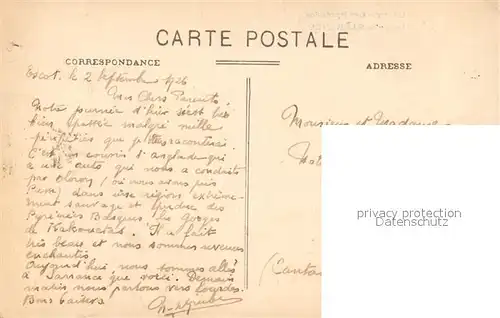 CARTE POSTALE
CORRESPONDANCE
ADRESSE
Escot. le 2 Septembre 1926
Mes Chers Parents
Notre journée d'hier s'est très
bien passée malgré mille
péripéties que je vous raconterai.
C'est un cousin d'
a une auto qui nous a conduits
par Oloron (où nous avons pris
) dans une région extrême-
ment sauvage et perdue des
Pyrénées Basques, les gorges
de Kakouetas. Il a fait
très beau et nous sommes revenus
enchantés.
Aujourd'hui nous sommes allés
à Sarrance que voici. Demain
matin nous partons vers Lourdes.
Bons baisers
Monsieur et Madame
(Cantal
privacy protection